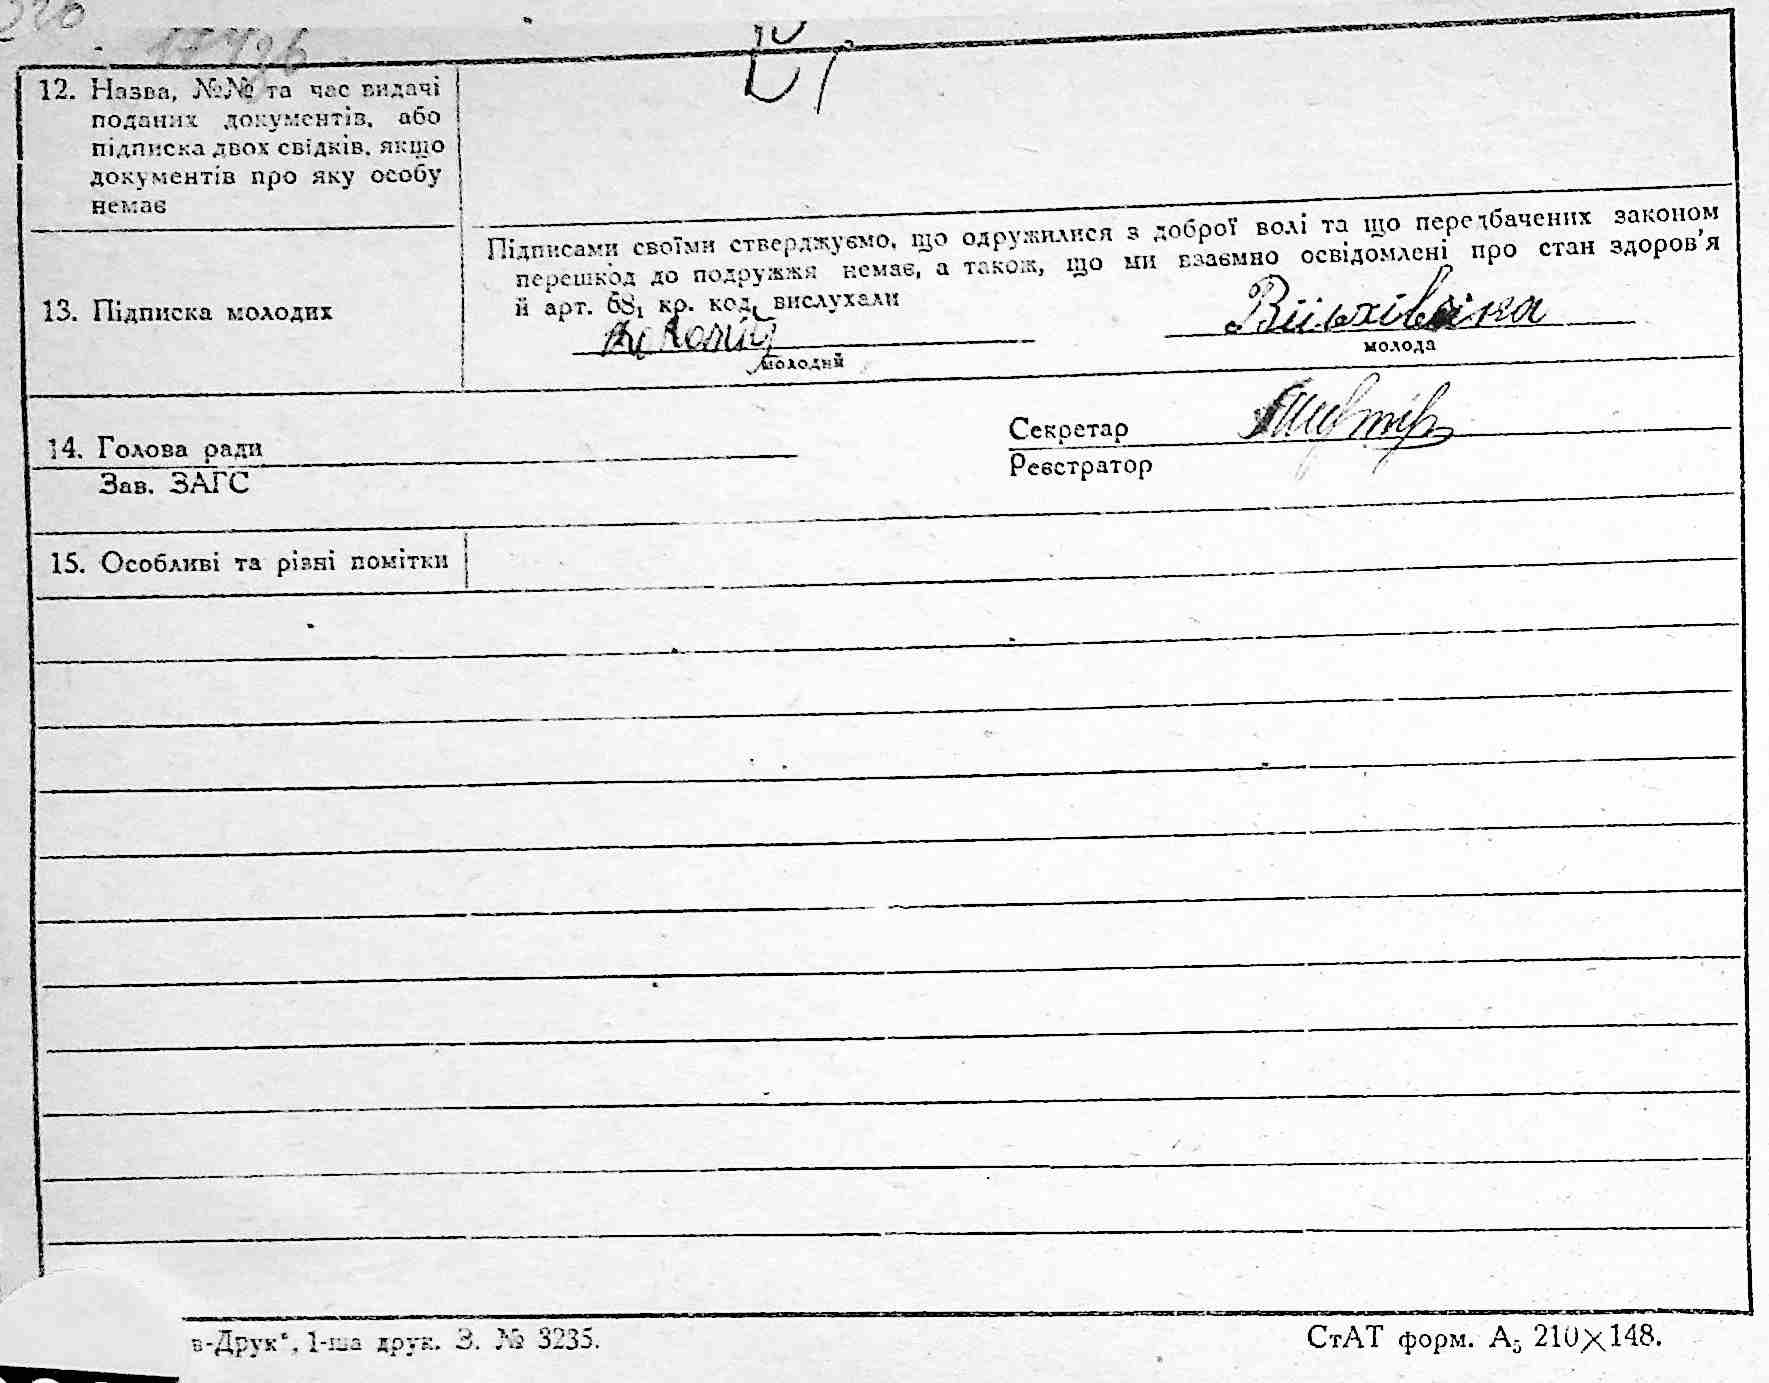 12. Назва, №№ та час видачі
поданих документів, або
підписка двох свідків, якщо
документів про яку особу
немає
13. Підписка молодих
Підписами своїми стверджуємо, що одружилися з доброї волі та що передбачених законом
перешкод до подружжя немає, а також, що ми взаємно освідомлені про стан здоров'я
й арт. 68₁ кр. код. вислухали
молодий
молода
14. Голова ради
Зав. ЗАГС
Секретар
Реєстратор
15. Особливі та різні помітки
в-Друк", 1-ша друк. З. № 3235.
СтАТ форм. А₅ 210×148.